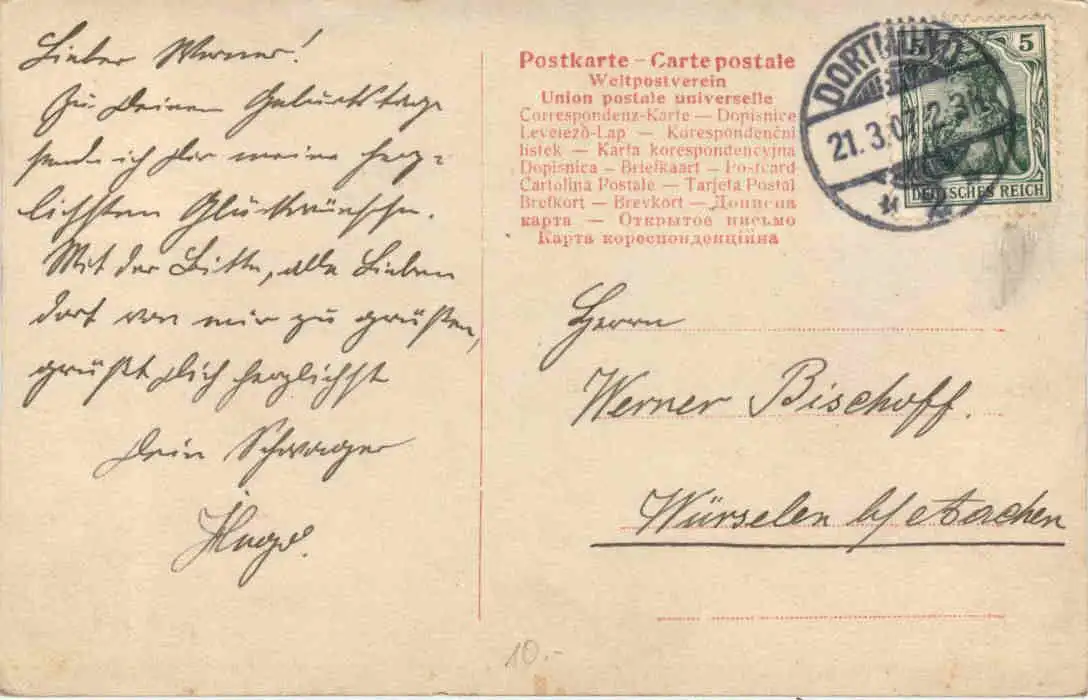 Lieber Werner!
Zu Deinem Geburtstage
sende ich Dir meine herz-
lichsten Glückwünsche.
Mit der Bitte, alle Lieben
dort von mir zu grüßen,
grüßt Dich herzlichst
Dein Schwager
Hugo.
Postkarte – Carte postale
Weltpostverein
Union postale universelle
Correspondenz-Karte — Dopisnice
Levelező-Lap — Korespondenční
listek — Karta korespondencyjna
Dopisnica — Briefkaart — Postcard
Cartolina Postale — Tarjeta Postal
Brefkort — Brevkort — Дописна
карта — Открытое письмо
Карта кореспонденційна
DORTMUND
21.3.07
2
5 5
DEUTSCHES REICH
Herrn
Werner Bischoff.
Würselen b/ Aachen
10.-